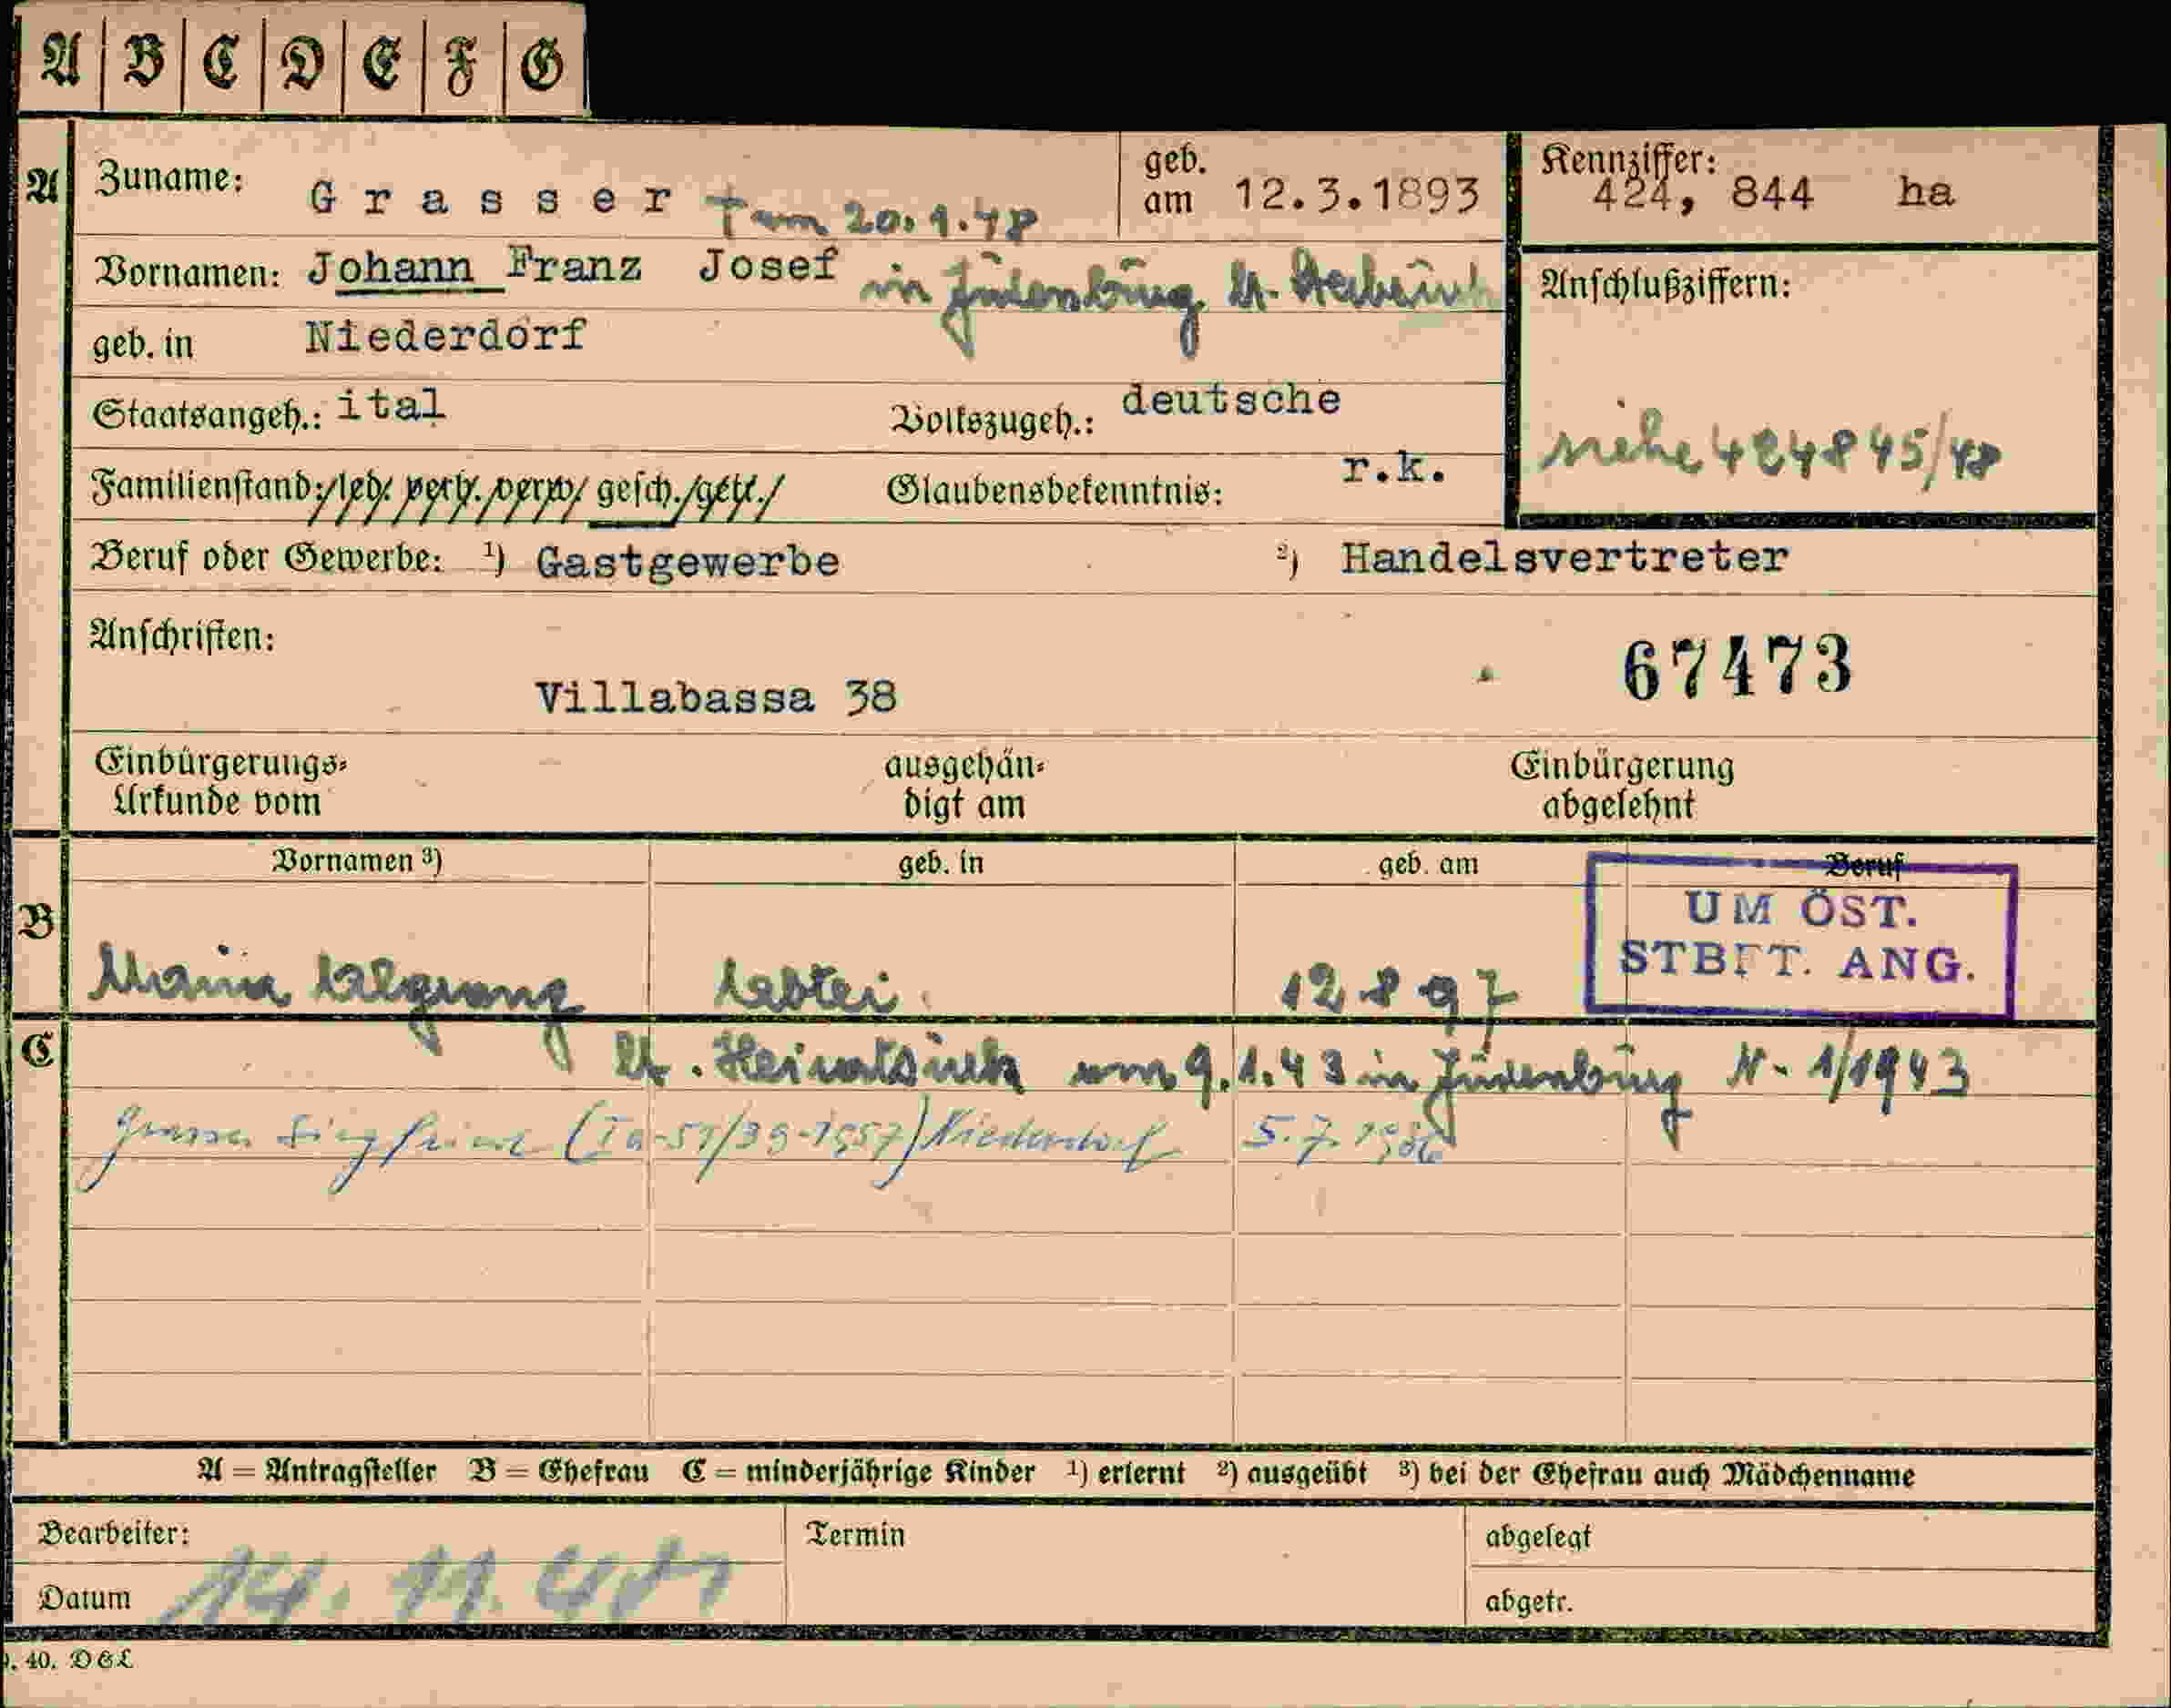 A B C D E F G
A Zuname: Grasser † am 20.9.48 geb. am 12.3.1893 Kennziffer: 424, 844 ha
Vornamen: Johann Franz Josef in Judenburg lt.
Anschlußziffern:
geb. in Niederdorf
Staatsangeh.: ital. Volkszugeh.: deutsche
siehe 424845/48
Familienstand: led. verh. verw. gesch. getr. Glaubensbekenntnis: r.k.
Beruf oder Gewerbe: ¹) Gastgewerbe ²) Handelsvertreter
Anschriften:
67473
Villabassa 38
Einbürgerungs- ausgehän- Einbürgerung
Urkunde vom digt am abgelehnt
Vornamen ³) geb. in geb. am Beruf
B
UM ÖST.
STBFT. ANG.
Maria 12.8.97
C lt. Heiratsurk am 9.1.43 in Judenburg N. 1/1943
Grasser Siegfried (Ia-51/39-1957) Niederdorf 5.7.
A = Antragsteller B = Ehefrau C = minderjährige Kinder ¹) erlernt ²) ausgeübt ³) bei der Ehefrau auch Mädchenname
Bearbeiter: Termin abgelegt
Datum 14. 11. abgetr.
. 40. D&L